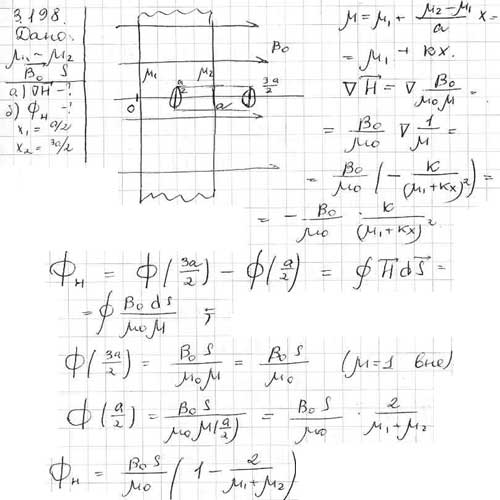 3.198.
Дано:
μ₁ – μ₂
B₀ S
а) ∇H̄ – ?
б) Φ_H – ?
x₁ = a/2
x₂ = 3a/2
B₀
μ₁ μ₂
a/2 3a/2
0 a
μ = μ₁ + (μ₂ – μ₁)/a x =
= μ₁ + кx.
∇H̄ = ∇ B₀/(μ₀μ) =
= B₀/μ₀ ∇ 1/μ =
= B₀/μ₀ (– к/(μ₁+кx)²) =
= – B₀/μ₀ · к/(μ₁+кx)².
Φ_H = Φ(3a/2) – Φ(a/2) = ∮ H̄ dS̄ =
= ∮ B₀ dS/(μ₀μ) =
Φ(3a/2) = B₀ S/(μ₀μ) = B₀ S/μ₀ (μ=1 вне)
Φ(a/2) = B₀ S/(μ₀μ(a/2)) = B₀ S/μ₀ · 2/(μ₁+μ₂)
Φ_H = B₀ S/μ₀ (1 – 2/(μ₁+μ₂))